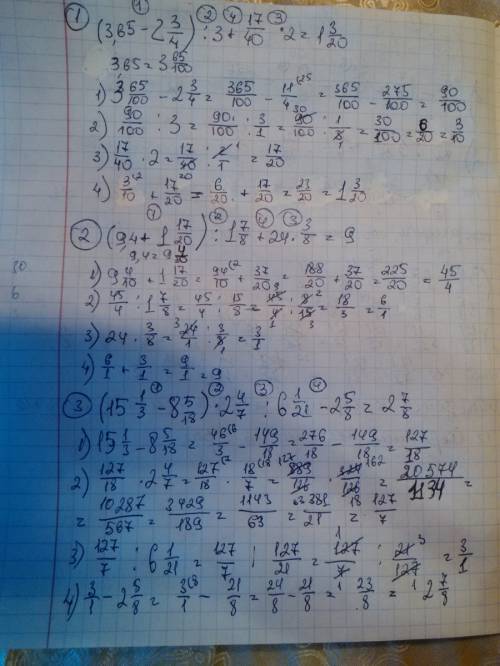 1 (3,65 - 2 3/4) : 3 + 17/40 · 2 = 1 3/20
3,65 = 3 65/100
1) 3 65/100 - 2 3/4 = 365/100 - 11/4 = 365/100 - 275/100 = 90/100
2) 90/100 : 3 = 90/100 : 3/1 = 90/100 · 1/3 = 30/100 = 6/20 = 3/10
3) 17/40 · 2 = 17/40 · 2/1 = 17/20
4) 3/10 + 17/20 = 6/20 + 17/20 = 23/20 = 1 3/20
2 (9,4 + 1 17/20) : 1 7/8 + 24 · 3/8 = 9
1) 9 4/10 + 1 17/20 = 94/10 + 37/20 = 188/20 + 37/20 = 225/20 = 45/4
2) 45/4 : 1 7/8 = 45/4 : 15/8 = 45/4 · 8/15 = 18/3 = 6/1
3) 24 · 3/8 = 24/1 · 3/8 = 3/1
4) 6/1 + 3/1 = 9/1 = 9
3 (15 1/3 - 8 5/18) · 2 4/7 : 6 1/21 - 2 5/8 = 2 7/8
1) 15 1/3 - 8 5/18 = 46/3 - 149/18 = 276/18 - 149/18 = 127/18
2) 127/18 · 2 4/7 = 127/18 · 18/7 = = 20574/1134 =
= 10287/567 = 3429/189 = 1143/63 = 381/21 = 127/7
3) 127/7 : 6 1/21 = 127/7 : 127/21 = 127/7 · 21/127 = 3/1
4) 3/1 - 2 5/8 = 3/1 - 21/8 = 24/8 - 21/8 = 23/8 = 2 7/8